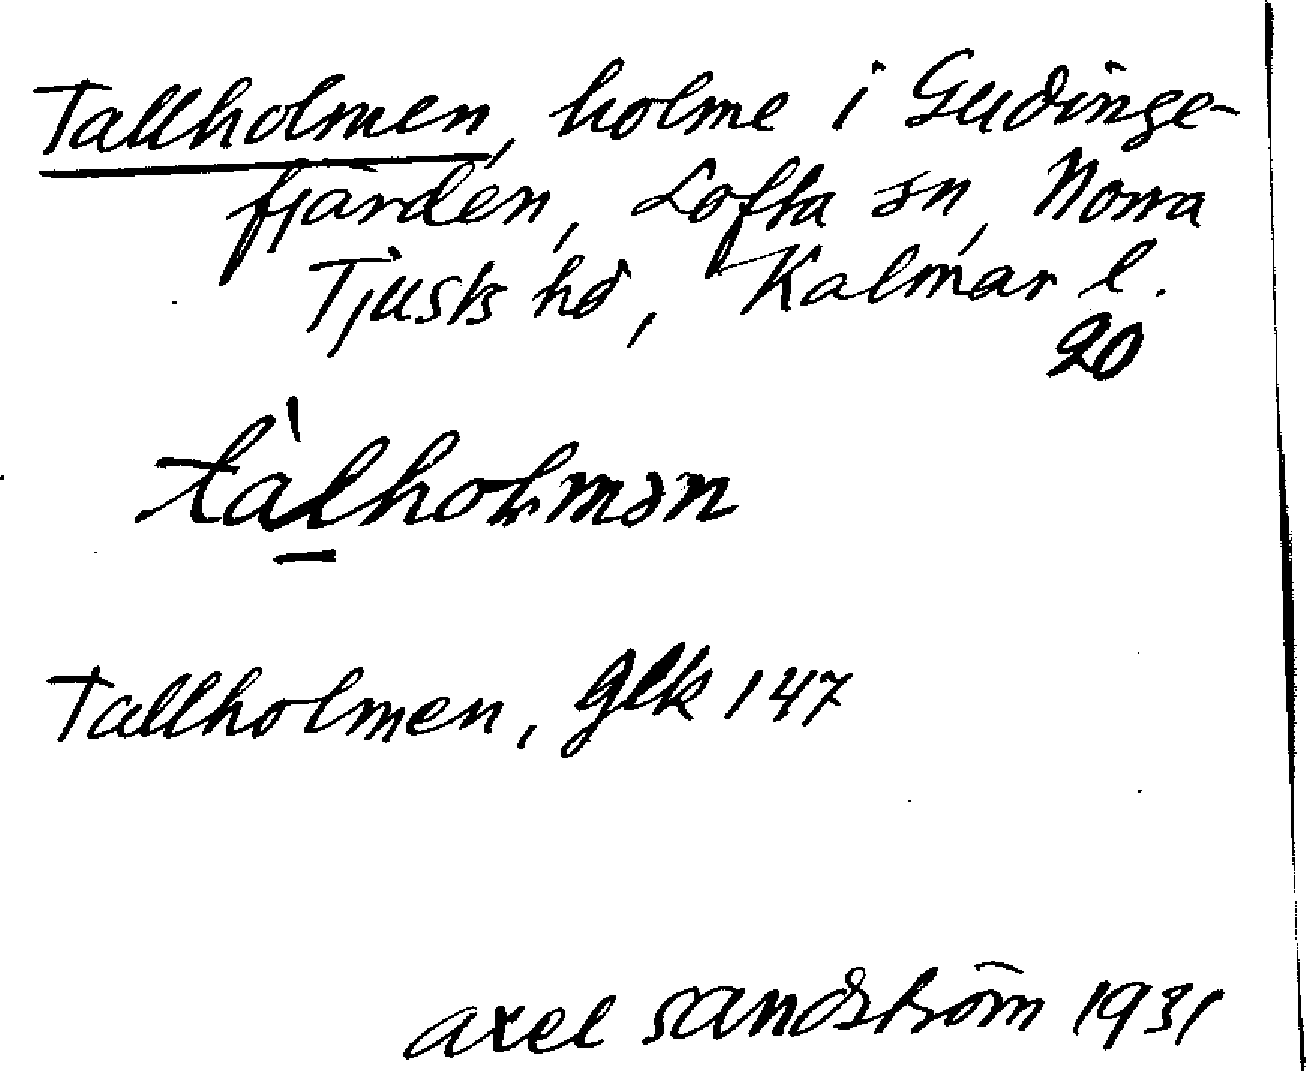 Tallholmen, holme i Gudinge-
fjärden, Lofta sn, Norra
Tjusts hd, Kalmar l.
20
tàlholmən
Tallholmen, glk 147
Axel Sandström 1931